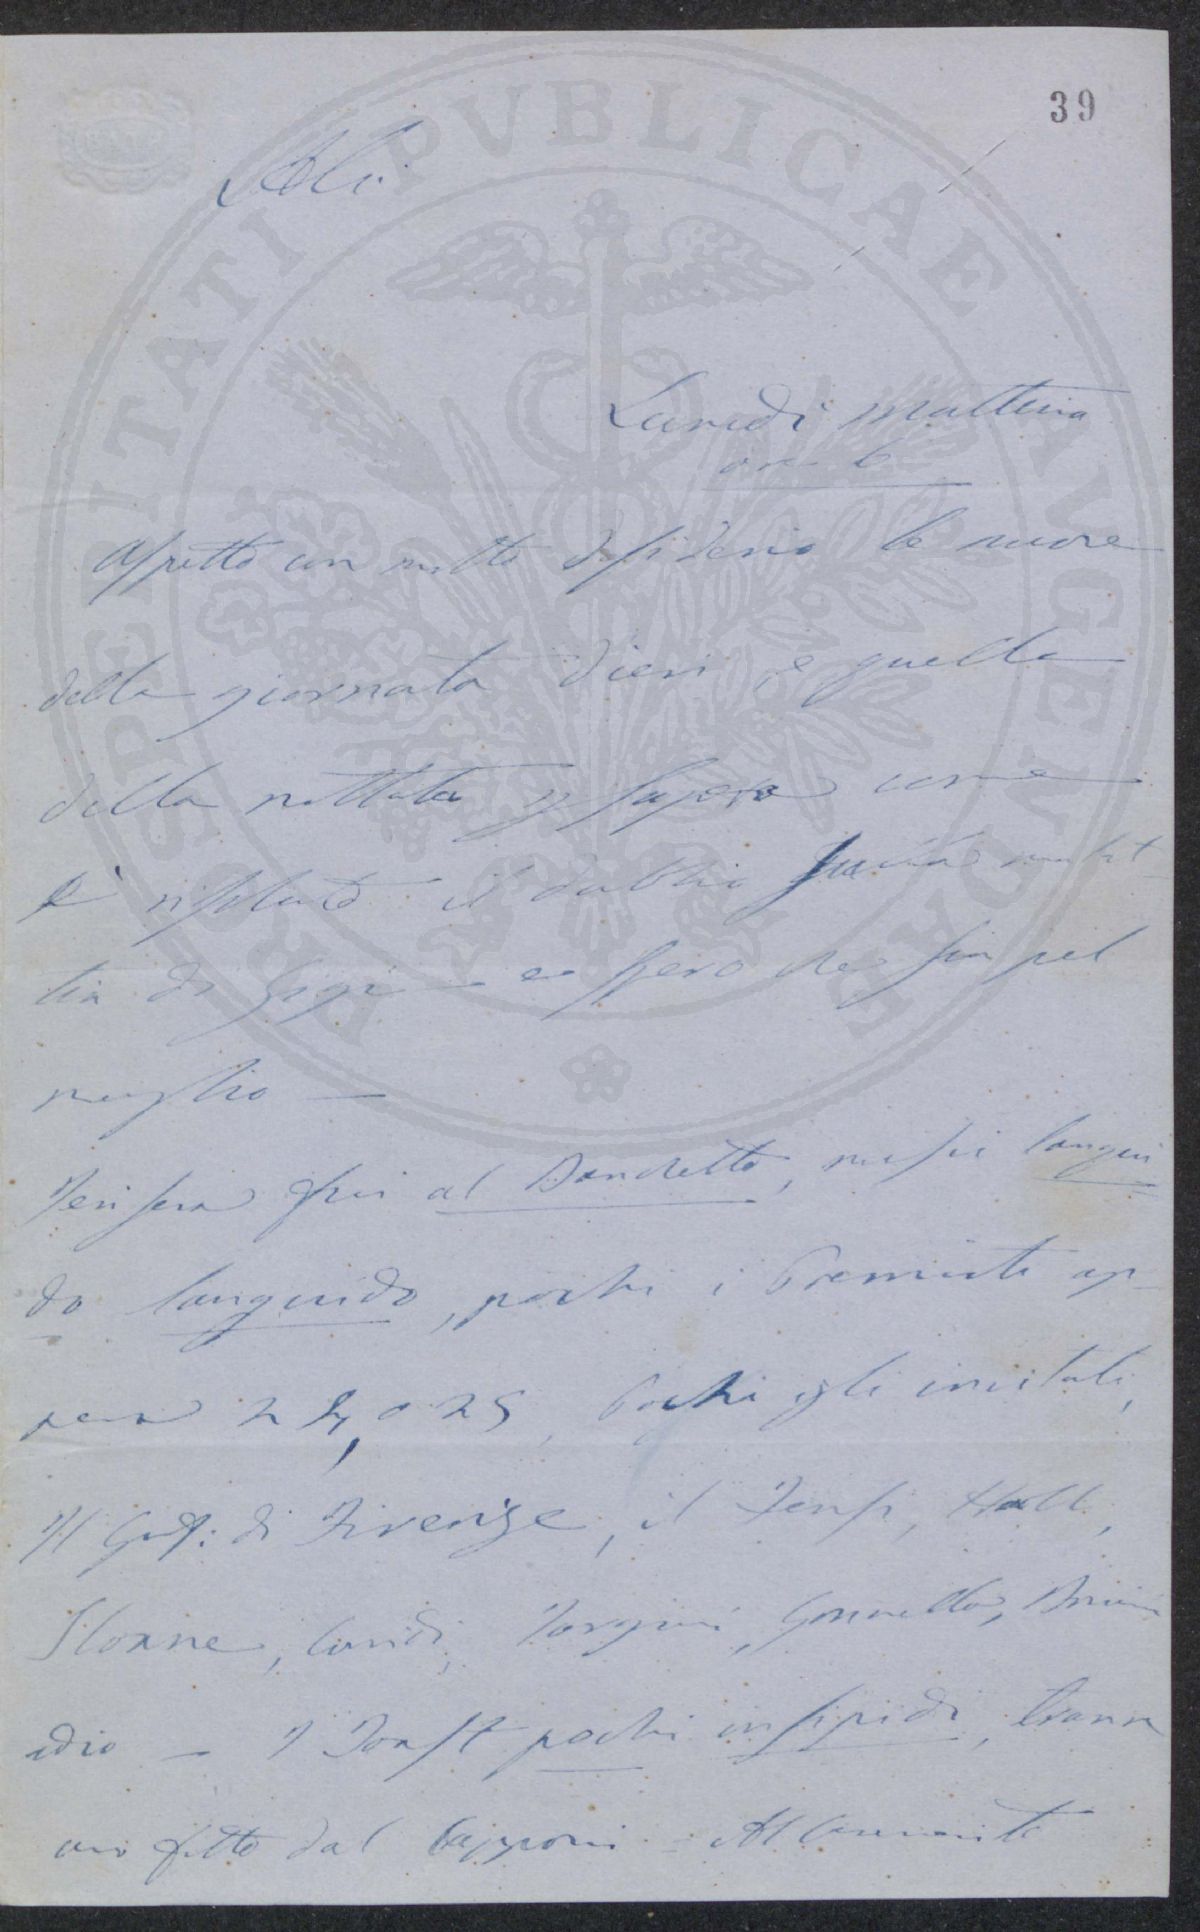 39
PROSPERITATI PVBLICAE AVGENDAE
Lunedì mattina
ore 6
Aspetto con molto desiderio le nuove
della giornata d'ieri, e quella
della nottata p sapere come
è risoluto il dubbio sulla malat
tia di Gigi — e spero che sia pel
meglio —
Ieri sera fui al Banchetto, riuscì langui
do languido, pochi i Premiati ap
pena 24, o 25, pochi gli invitati,
Il Gonf: di Firenze, il Tensi, Hall,
Sloane, Corridi, Gonnella,
adio — I Toast pochi insipidi, tranne
uno fatto dal Capponi